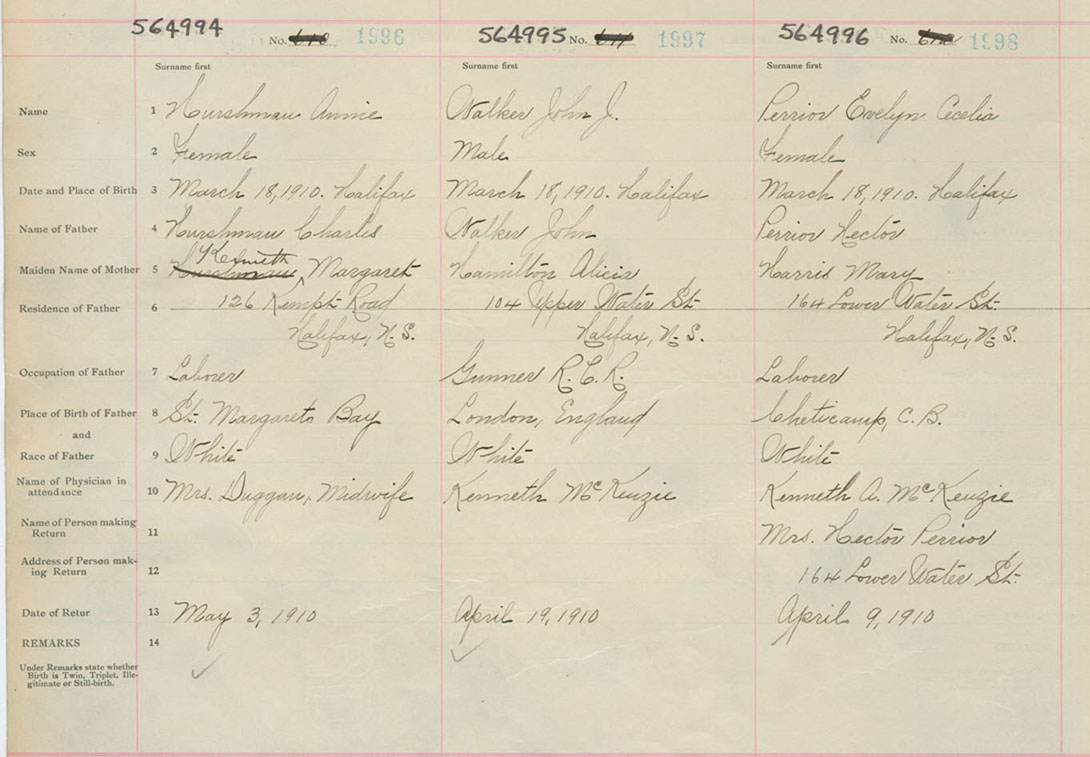 564994 No. 610 1996 564995 No. 611 1997 564996 No. 612 1998
Surname first Surname first Surname first
Name 1 Hurshman Annie Walker John J. Perrior Evelyn Cecelia
Sex 2 Female Male Female
Date and Place of Birth 3 March 18, 1910. Halifax March 18, 1910. Halifax March 18, 1910. Halifax
Name of Father 4 Hurshman Charles Walker John Perrior Hector
Maiden Name of Mother 5 Hurshman, Margaret Hamilton Alicia Harris Mary
Residence of Father 6 126 Kempt Road 104 Upper Water St. 164 Lower Water St.
Halifax, N.S. Halifax, N.S. Halifax, N.S.
Occupation of Father 7 Laborer Gunner R.C.R. Laborer
Place of Birth of Father 8 St. Margarets Bay London, England Cheticamp, C.B.
and
Race of Father 9 White White White
Name of Physician in
attendance 10 Mrs. Duggan, Midwife Kenneth McKenzie Kenneth A. McKenzie
Name of Person making
Return 11 Mrs. Hector Perrior
Address of Person mak-
ing Return 12 164 Lower Water St.
Date of Retur 13 May 3, 1910 April 19, 1910 April 9, 1910
REMARKS 14
Under Remarks state whether
Birth is Twin, Triplet, Ille-
gitimate or Still-birth.